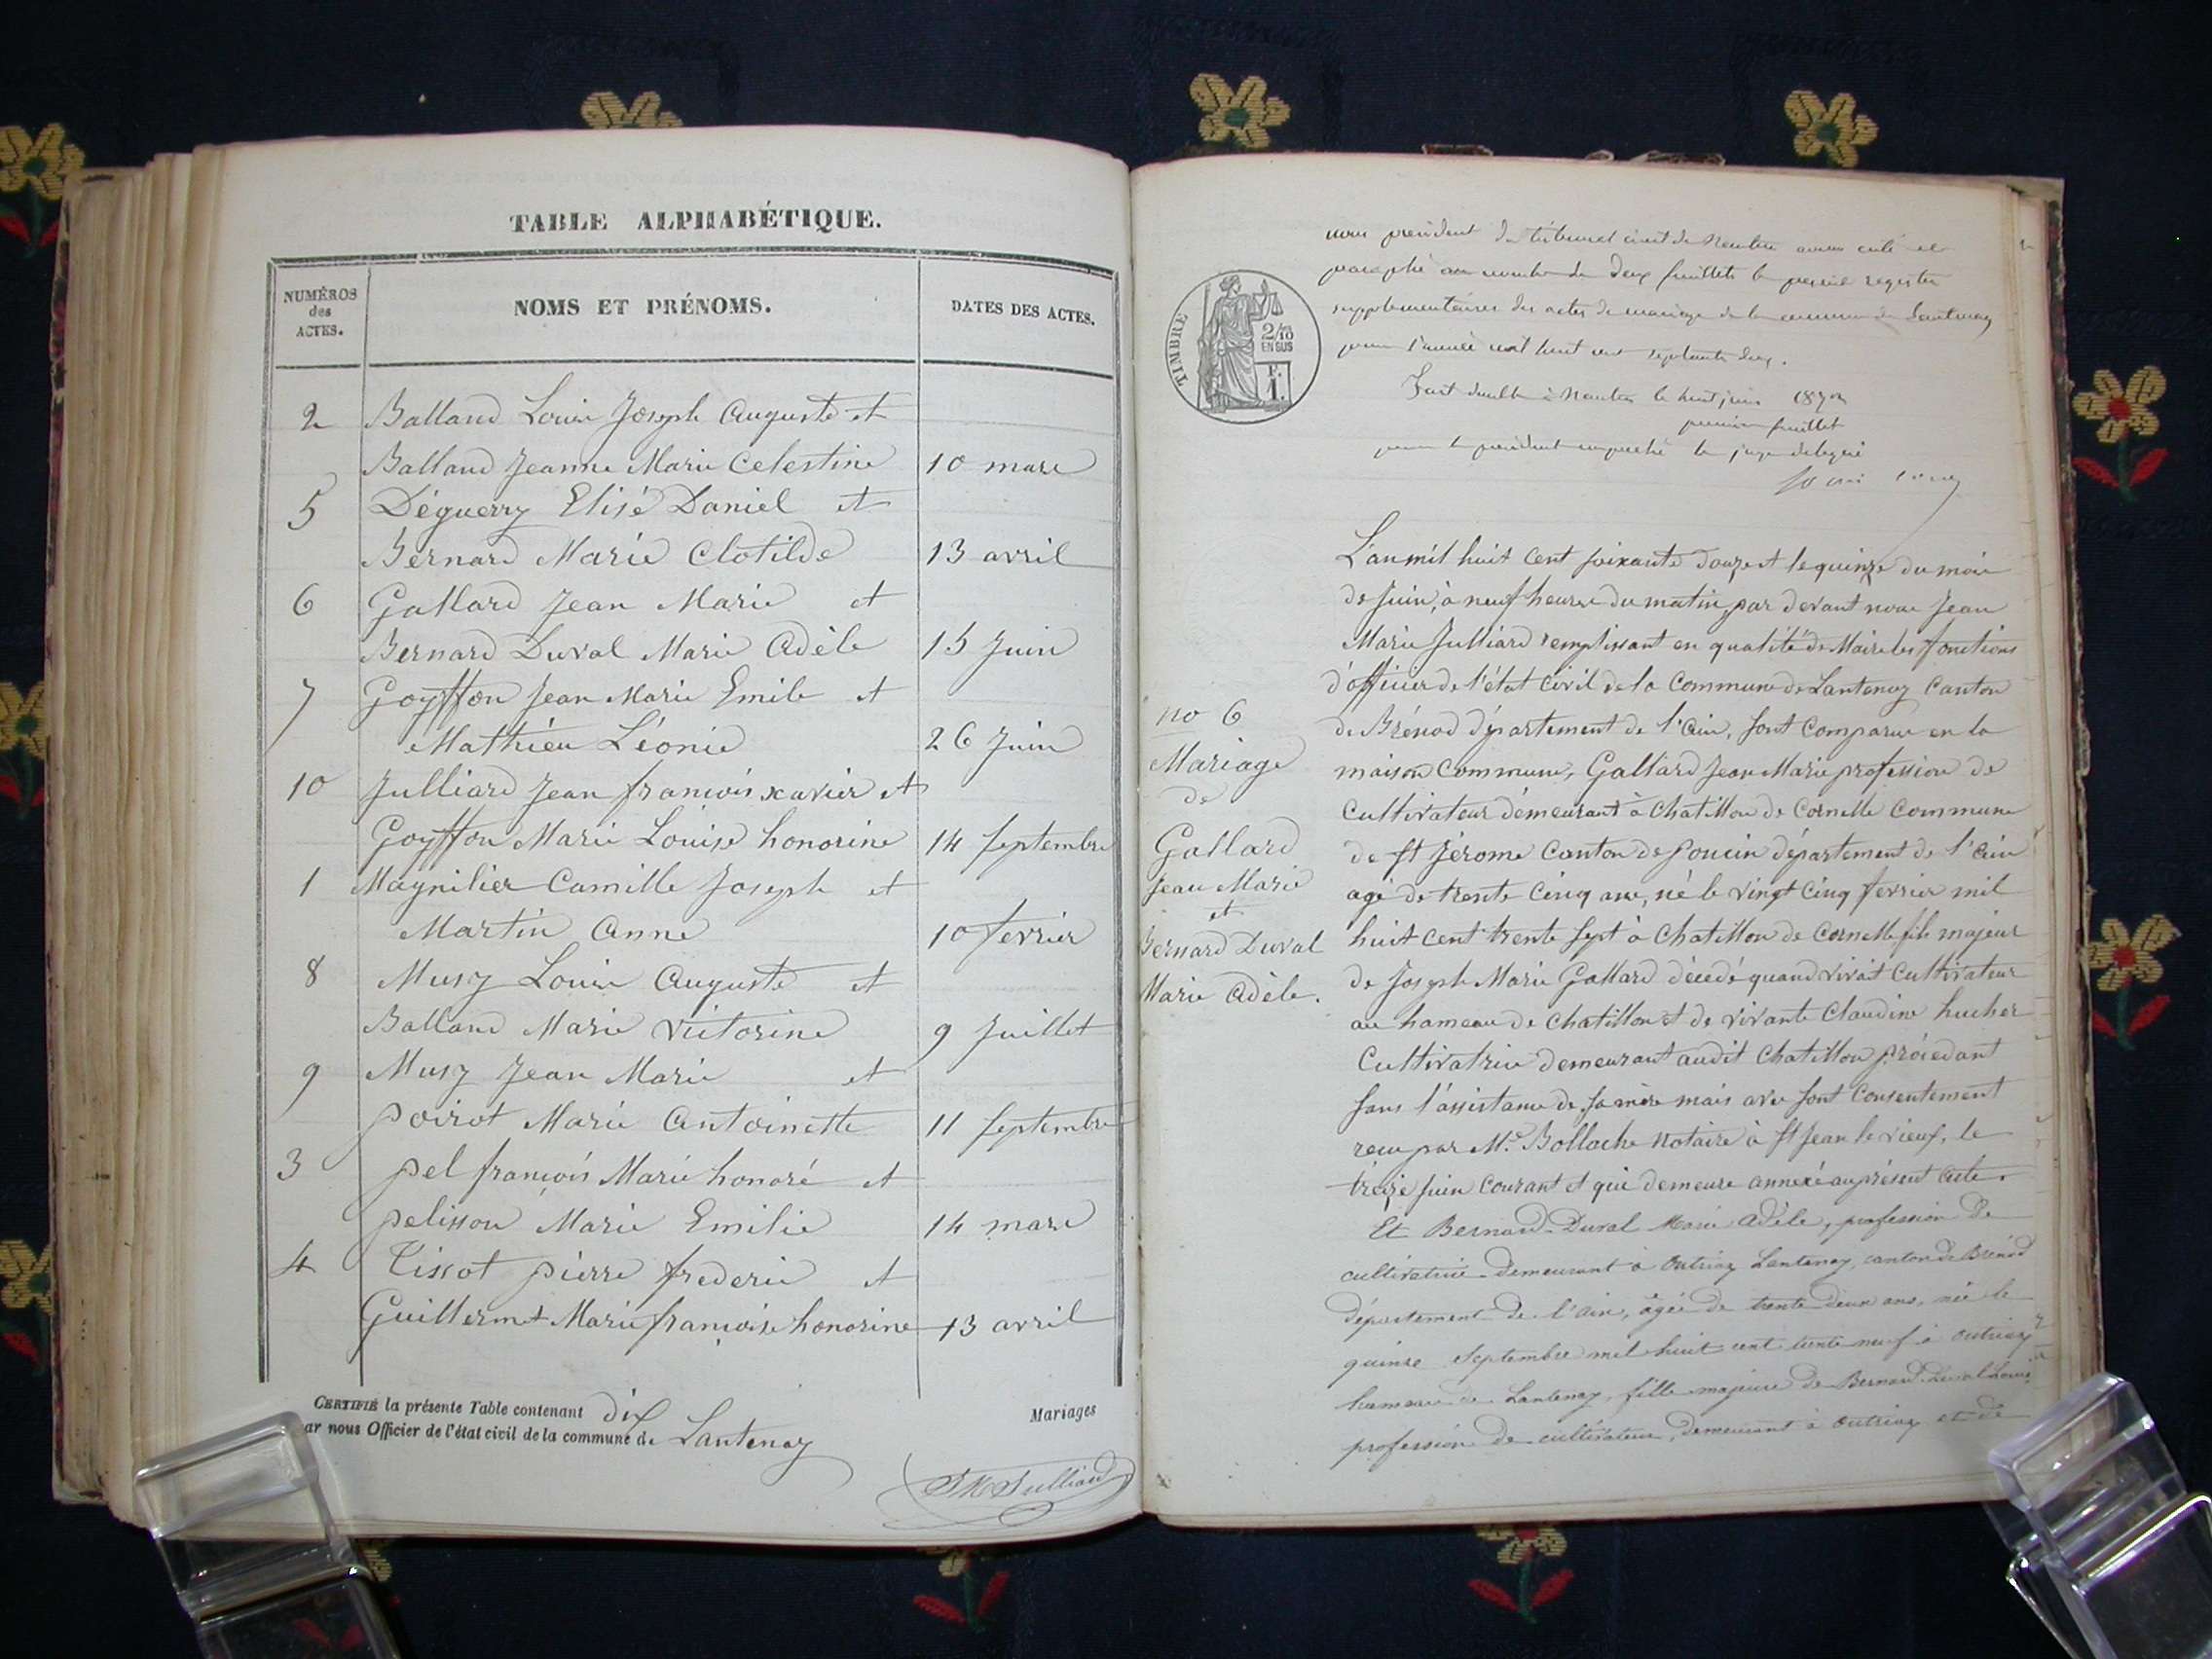 TABLE ALPHABÉTIQUE.
NUMÉROS des ACTES.
NOMS ET PRÉNOMS.
DATES DES ACTES.
2 Balland Louis Joseph Auguste et
Balland Jeanne Marie Celestine 10 mars
5 Déguerry Elisé Daniel et
Bernard Marie Clotilde 13 avril
6 Gallard Jean Marie et
Bernard Duval Marie Adèle 15 Juin
7 Goyffon Jean Marie Emile et
Mathieu Léonie 26 Juin
10 Julliard Jean françois xavier et
Goyffon Marie Louise honorine 14 Septembre
1 Magnilier Camille Joseph et
Martin Anne 10 fevrier
8 Musy Louis Auguste et
Balland Marie Victorine 9 Juillet
9 Musy Jean Marie et
poirot Marie Antoinette 11 Septembre
3 pel françois Marie honoré et
pelisson Marie Emilie 14 mars
4 Tissot pierre frederic et
Guillermet Marie françoise honorine 13 avril
CERTIFIÉ la présente Table contenant dix Mariages
par nous Officier de l'état civil de la commune de Lantenay
JM Julliard
TIMBRE
2/10
EN SUS
F.
1.
nous president du tribunal civil de Nantua avons coté et
paraphé au nombre de deux feuillets le present registre
supplementaires des actes de mariage de la commune de Lantenay
pour l'année mil huit cent septante deux.
Fait double à Nantua le huit juin 1872
premier feuillet
pour le président empeché le juge délégué
L'an mil huit cent soixante douze et le quinze du mois
de Juin, à neuf heures du matin, par devant nous Jean
Marie Julliard remplissant en qualité de Maire les fonctions
d'officier de l'état civil de la Commune de Lantenay Canton
de Brénod département de l'Ain, sont comparus en la
maison Commune, Gallard Jean Marie profession de
Cultivateur demeurant à Chatillon de Cornelle Commune
de St Jérome Canton de Poncin département de l'Ain
agé de trente cinq ans, né le vingt cinq fevrier mil
huit cent trente sept à Chatillon de Cornelle fils majeur
de Joseph Marie Gallard décedé quand vivait Cultivateur
au hameau de Chatillon et de vivante Claudine hucher
Cultivatrice demeurant audit Chatillon procedant
sans l'assistance de sa mère mais avec sont Consentement
recu par Me. Bollache Notaire à St Jean le vieux, le
treize juin Courant et qui demeure annexé au présent acte.
Et Bernard-Duval Marie Adèle, profession de
cultivatrice demeurant à Outriaz Lantenay, canton de Brénod
département de l'Ain, âgée de trente deux ans, née le
quinze septembre mil huit cent trente neuf à Outriaz
hameau de Lantenay, fille majeure de Bernard-Duval Louis
profession de cultivateur, demeurant à Outriaz et de
no 6
Mariage
de
Gallard
Jean Marie
et
Bernard Duval
Marie Adèle.